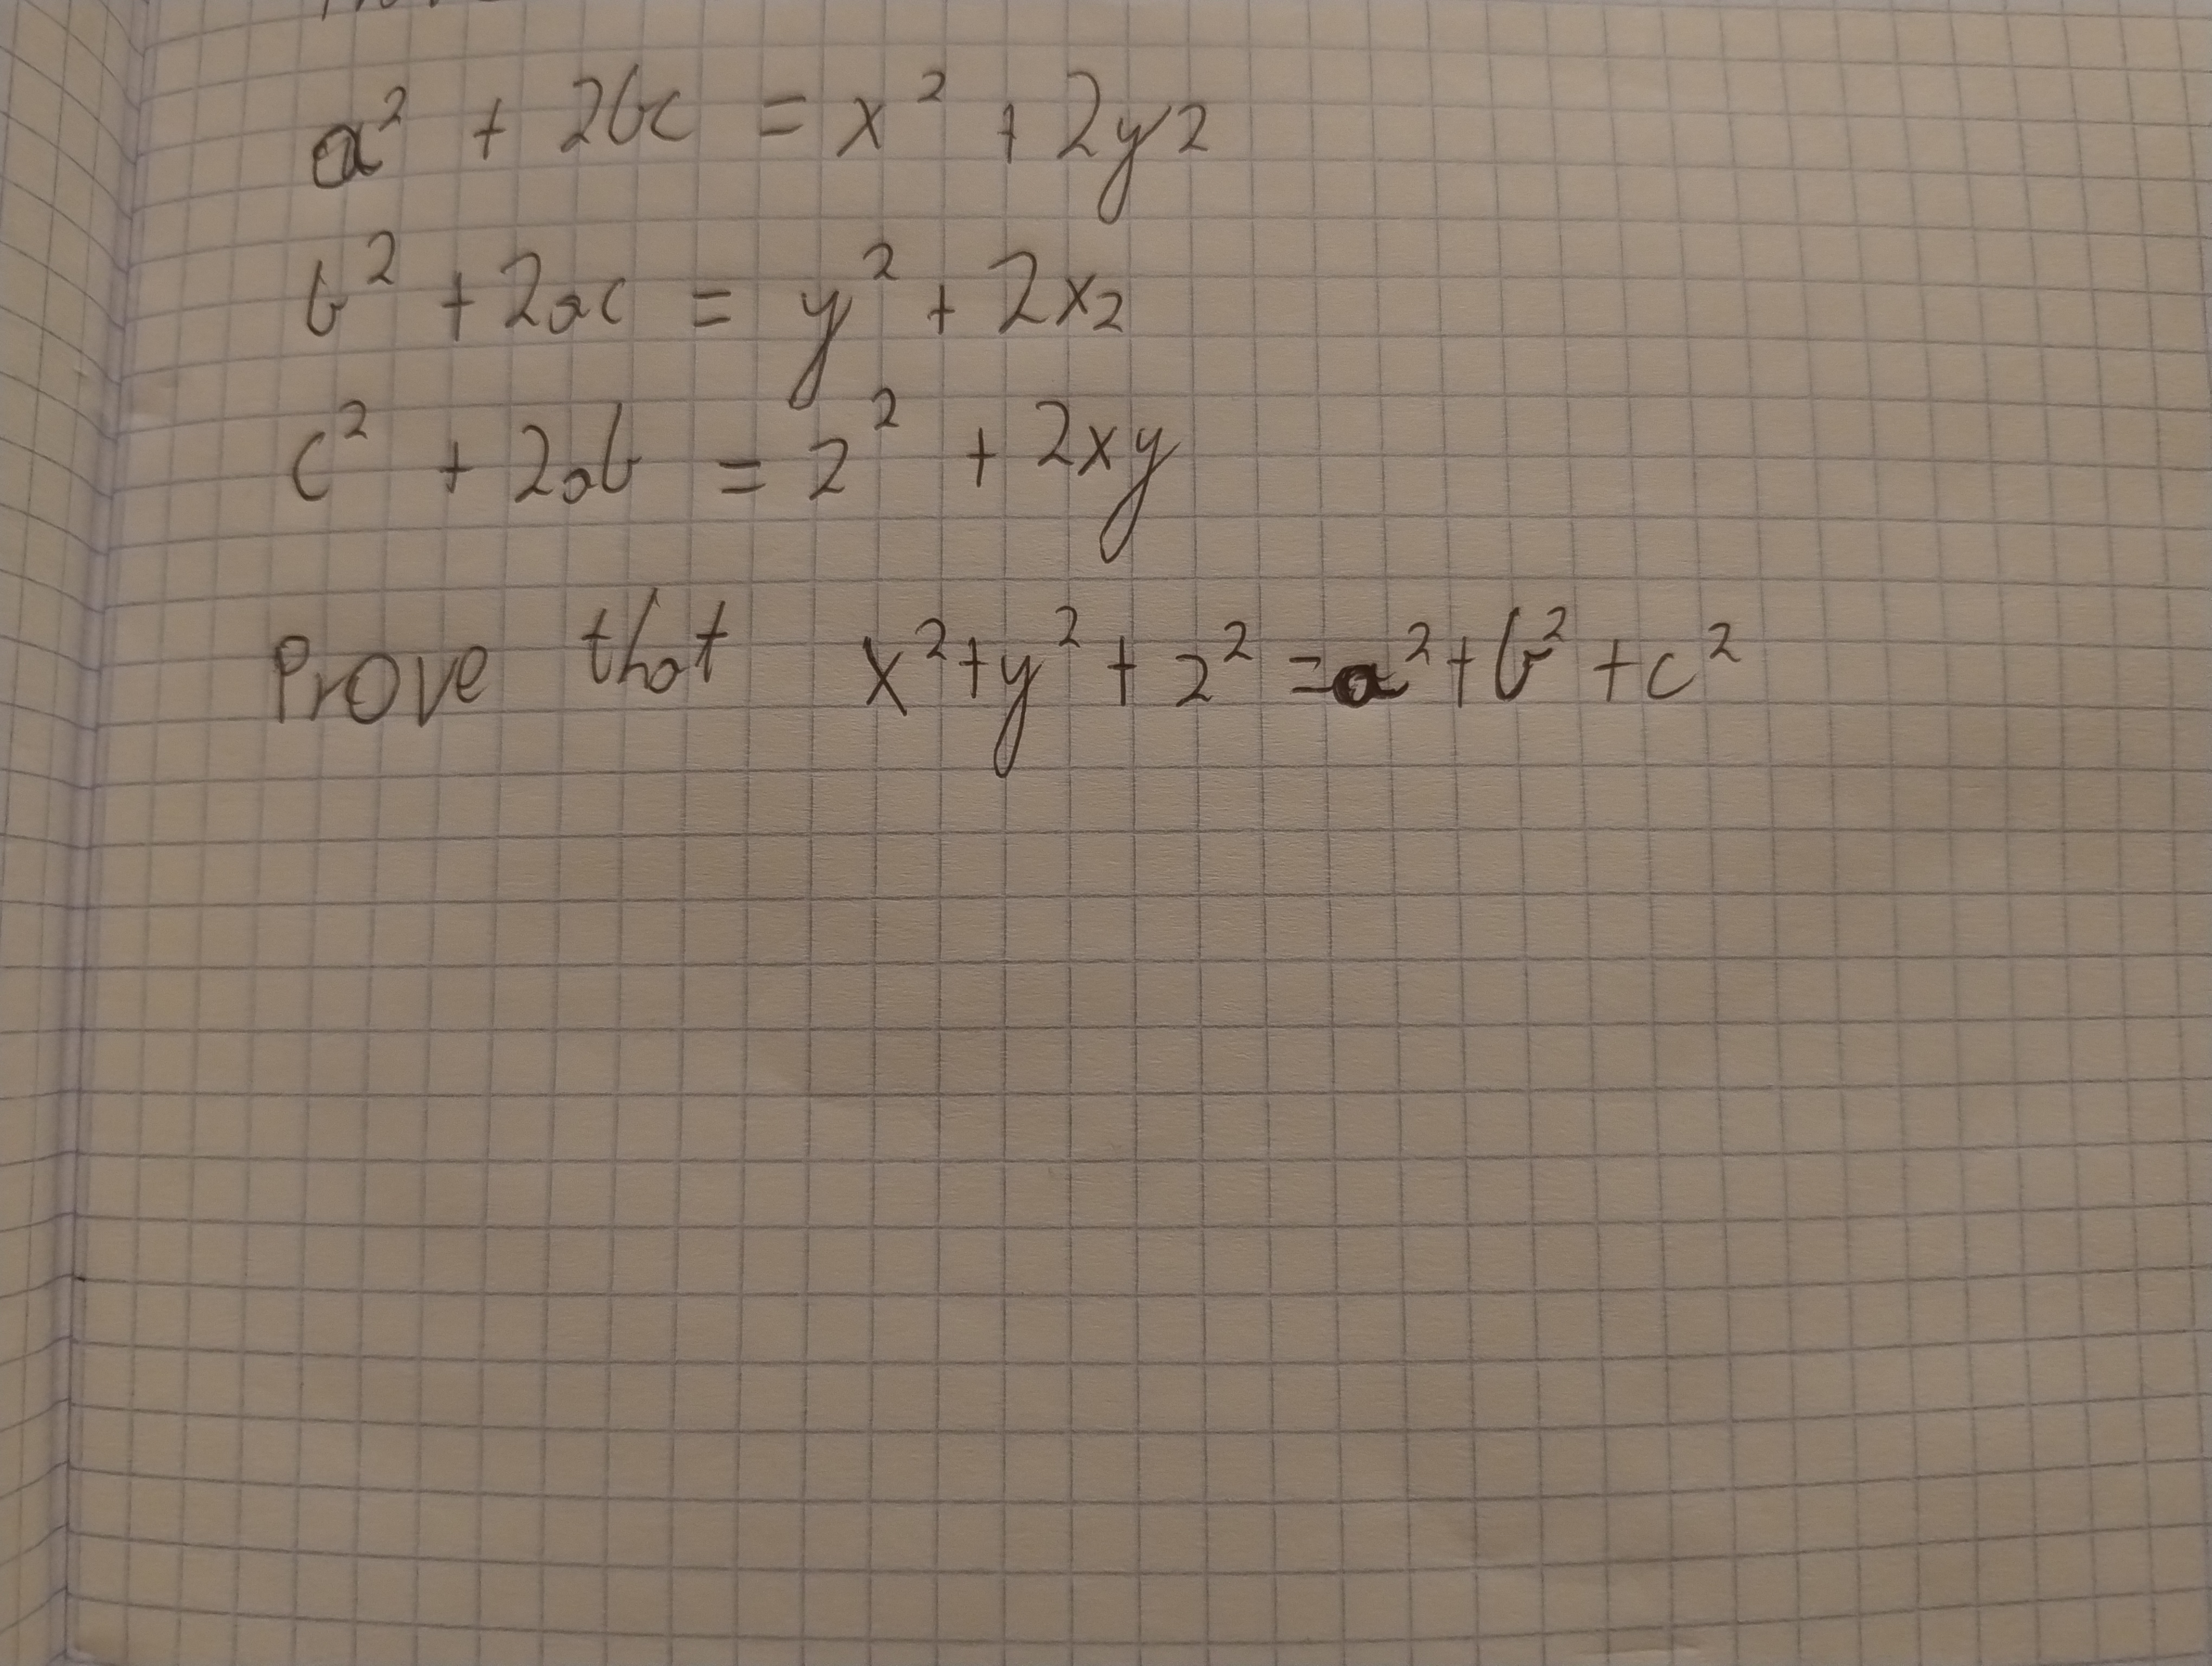 a² + 2bc = x² + 2yz
b² + 2ac = y² + 2xz
c² + 2ab = z² + 2xy
Prove that x² + y² + z² = a² + b² + c²